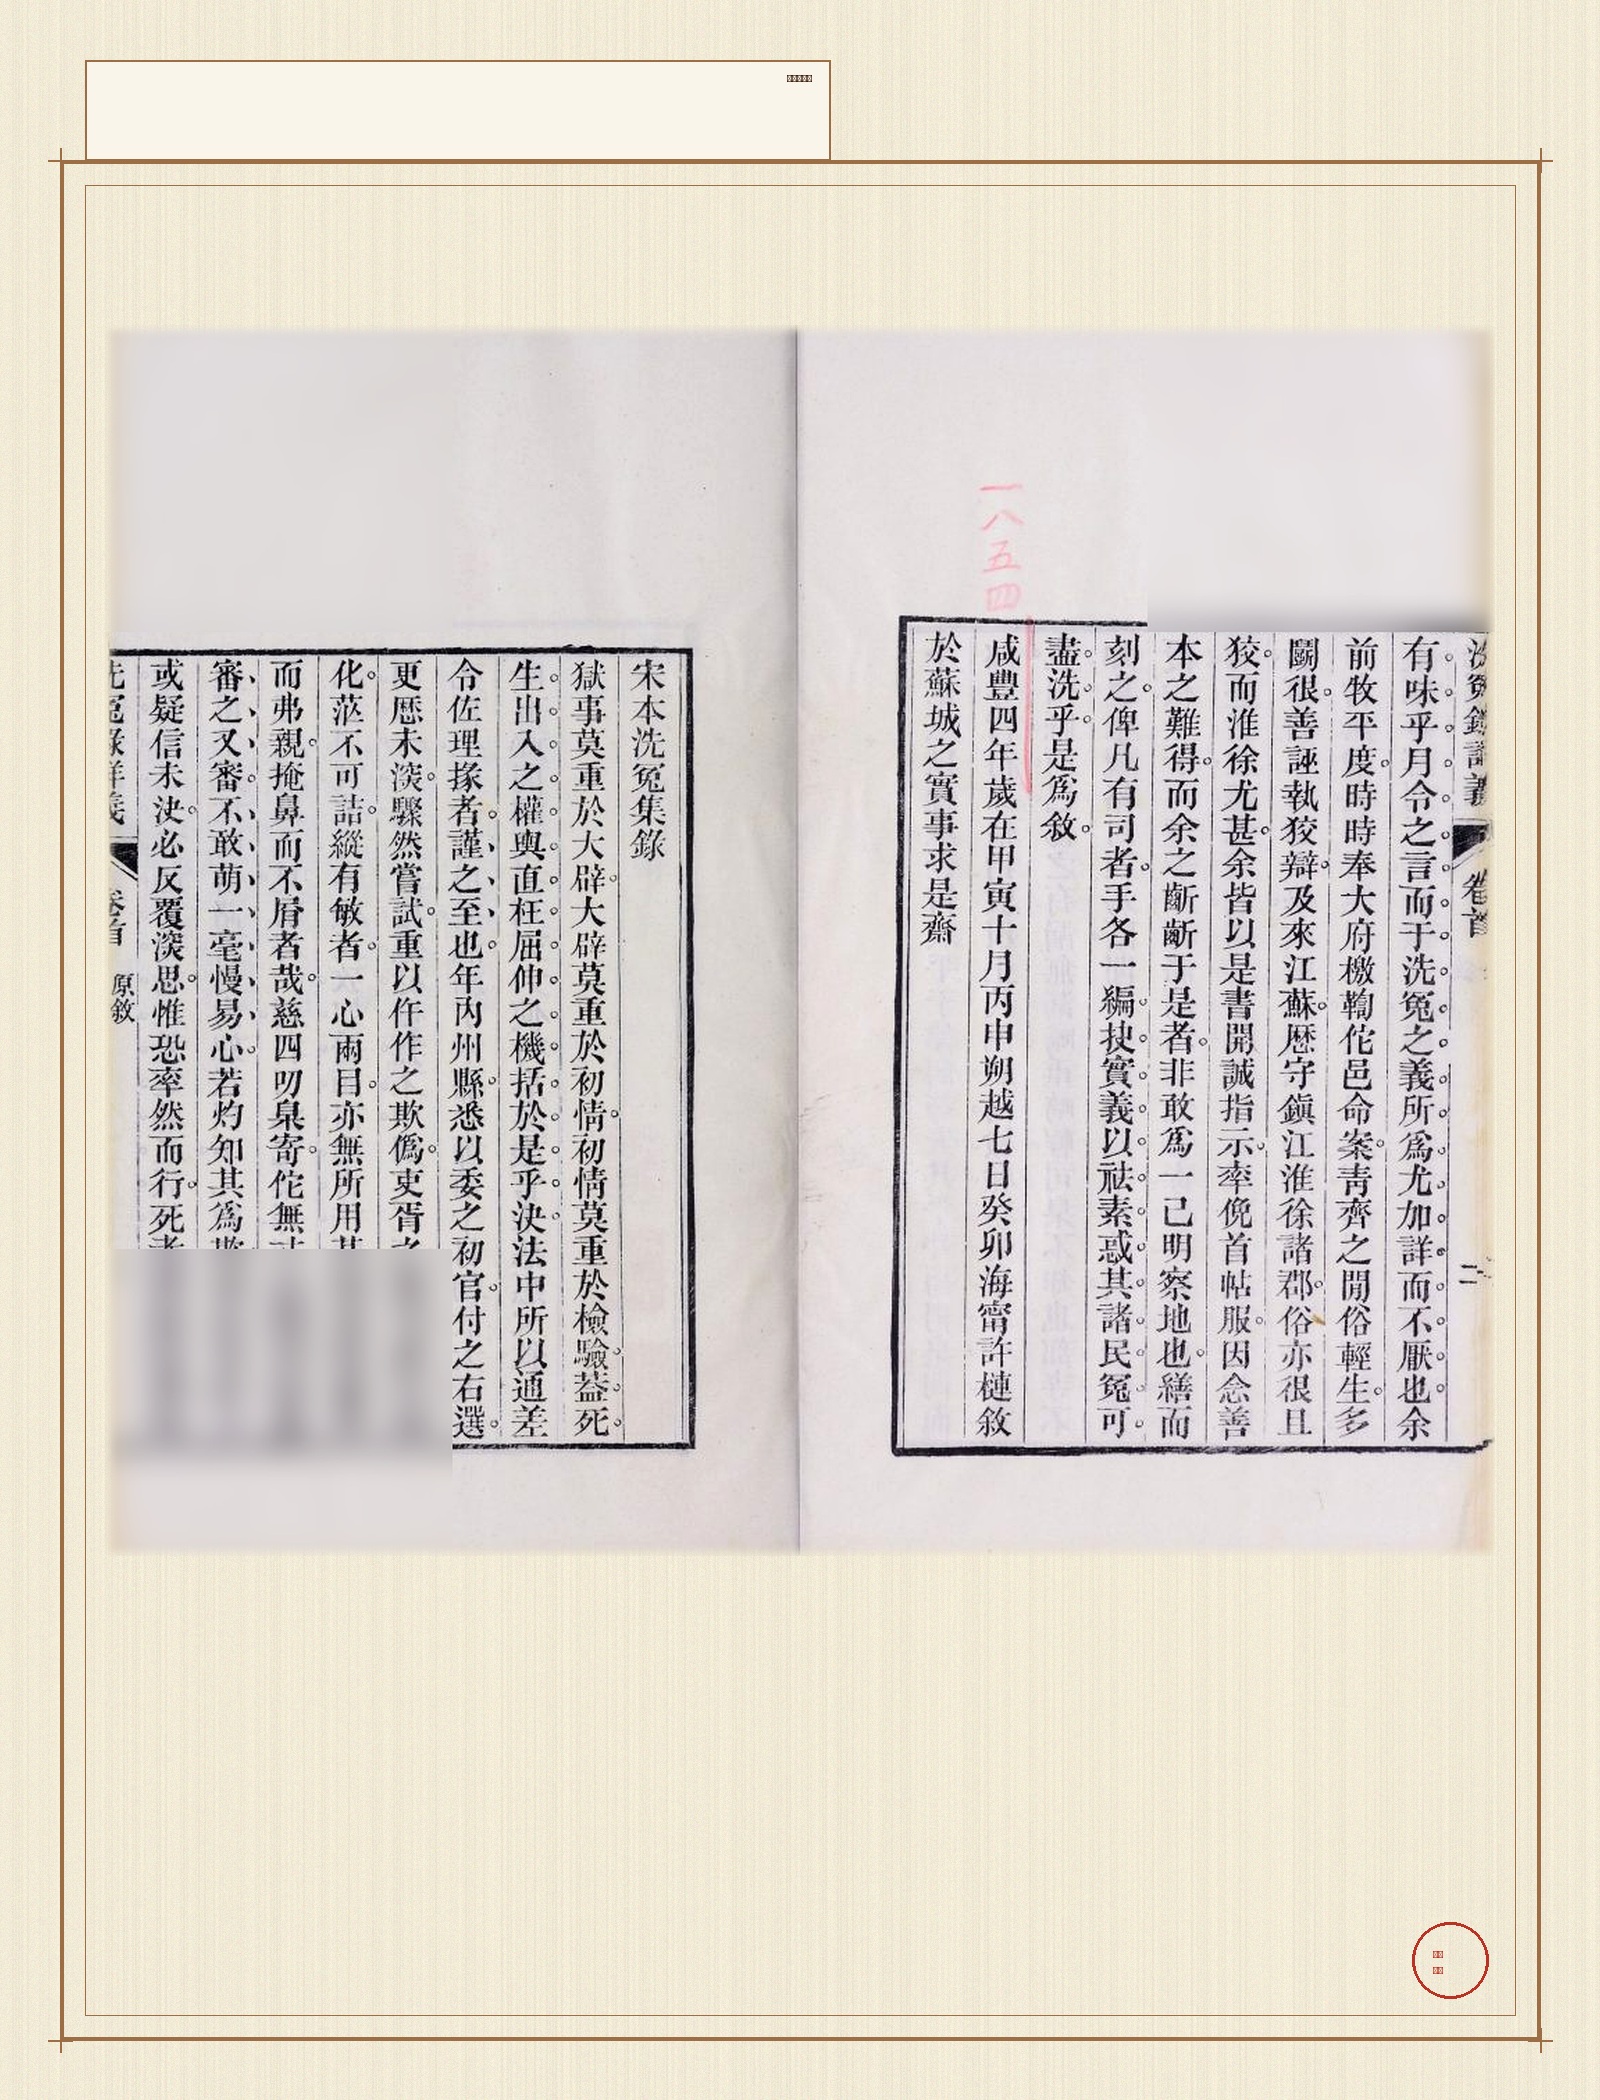 有味乎月令之言而于洗冤之義所爲尤加詳而不厭也余
前牧平度時時奉大府檄鞫佗邑命案靑齊之閒俗輕生多
鬬很善誣執狡辯及來江蘇歷守鎭江淮徐諸郡俗亦很且
狡而淮徐尤甚余皆以是書開誠指示率俛首帖服因念善
本之難得而余之齗齗于是者非敢爲一己明察地也繕而
刻之俾凡有司者手各一編抉實義以祛素惑其諸民冤可
盡洗乎是爲敘
一八五四
咸豐四年歲在甲寅十月丙申朔越七日癸卯海甯許槤敘
於蘇城之實事求是齋
宋本洗冤集錄
獄事莫重於大辟大辟莫重於初情初情莫重於檢驗葢死
生出入之權輿直枉屈伸之機括於是乎決法中所以通差
令佐理掾者謹之至也年內州縣悉以委之初官付之右選
更歷未深驟然嘗試重以仵作之欺僞吏胥之
化茫不可詰縱有敏者一心兩目亦無所用其
而弗親掩鼻而不屑者哉慈四叨臬寄佗無寸
審之又審不敢萌一毫慢易心若灼知其爲欺
或疑信未決必反覆深思惟恐率然而行死者
原敘